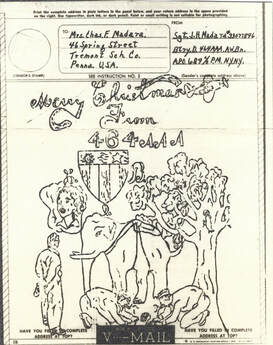 Print the complete address in plain letters in the panel below, and your return address in the space provided
on the right. Use typewriter, dark ink, or dark pencil. Faint or small writing is not suitable for photographing.
TO:
FROM
Mrs. Chas. F. Madara.
46 Spring Street
Tremont Sch. Co.
Penna. U.S.A.
Sgt. J.R. Madara
Btry. D. 464 AAA. Aw. Bn.
APO. 689 % P.M. N.Y. N.Y.
(CENSOR'S STAMP)
SEE INSTRUCTION NO. 2
(Sender's complete address above)
Merry Christmas
From
464 AAA
HAVE YOU FILLED IN COMPLETE
ADDRESS AT TOP?
V-MAIL
HAVE YOU FILLED IN COMPLETE
ADDRESS AT TOP?